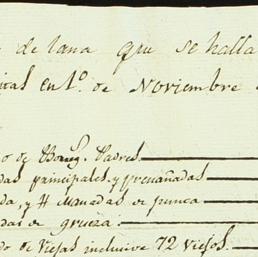 de lana que se halla
en 1º. de Noviembre
o de Borreg. Padres
das principales, y preñadas
da, y 4 Manadas de punca
das de grueza.
do de Viejas inclusive 72 viejos.